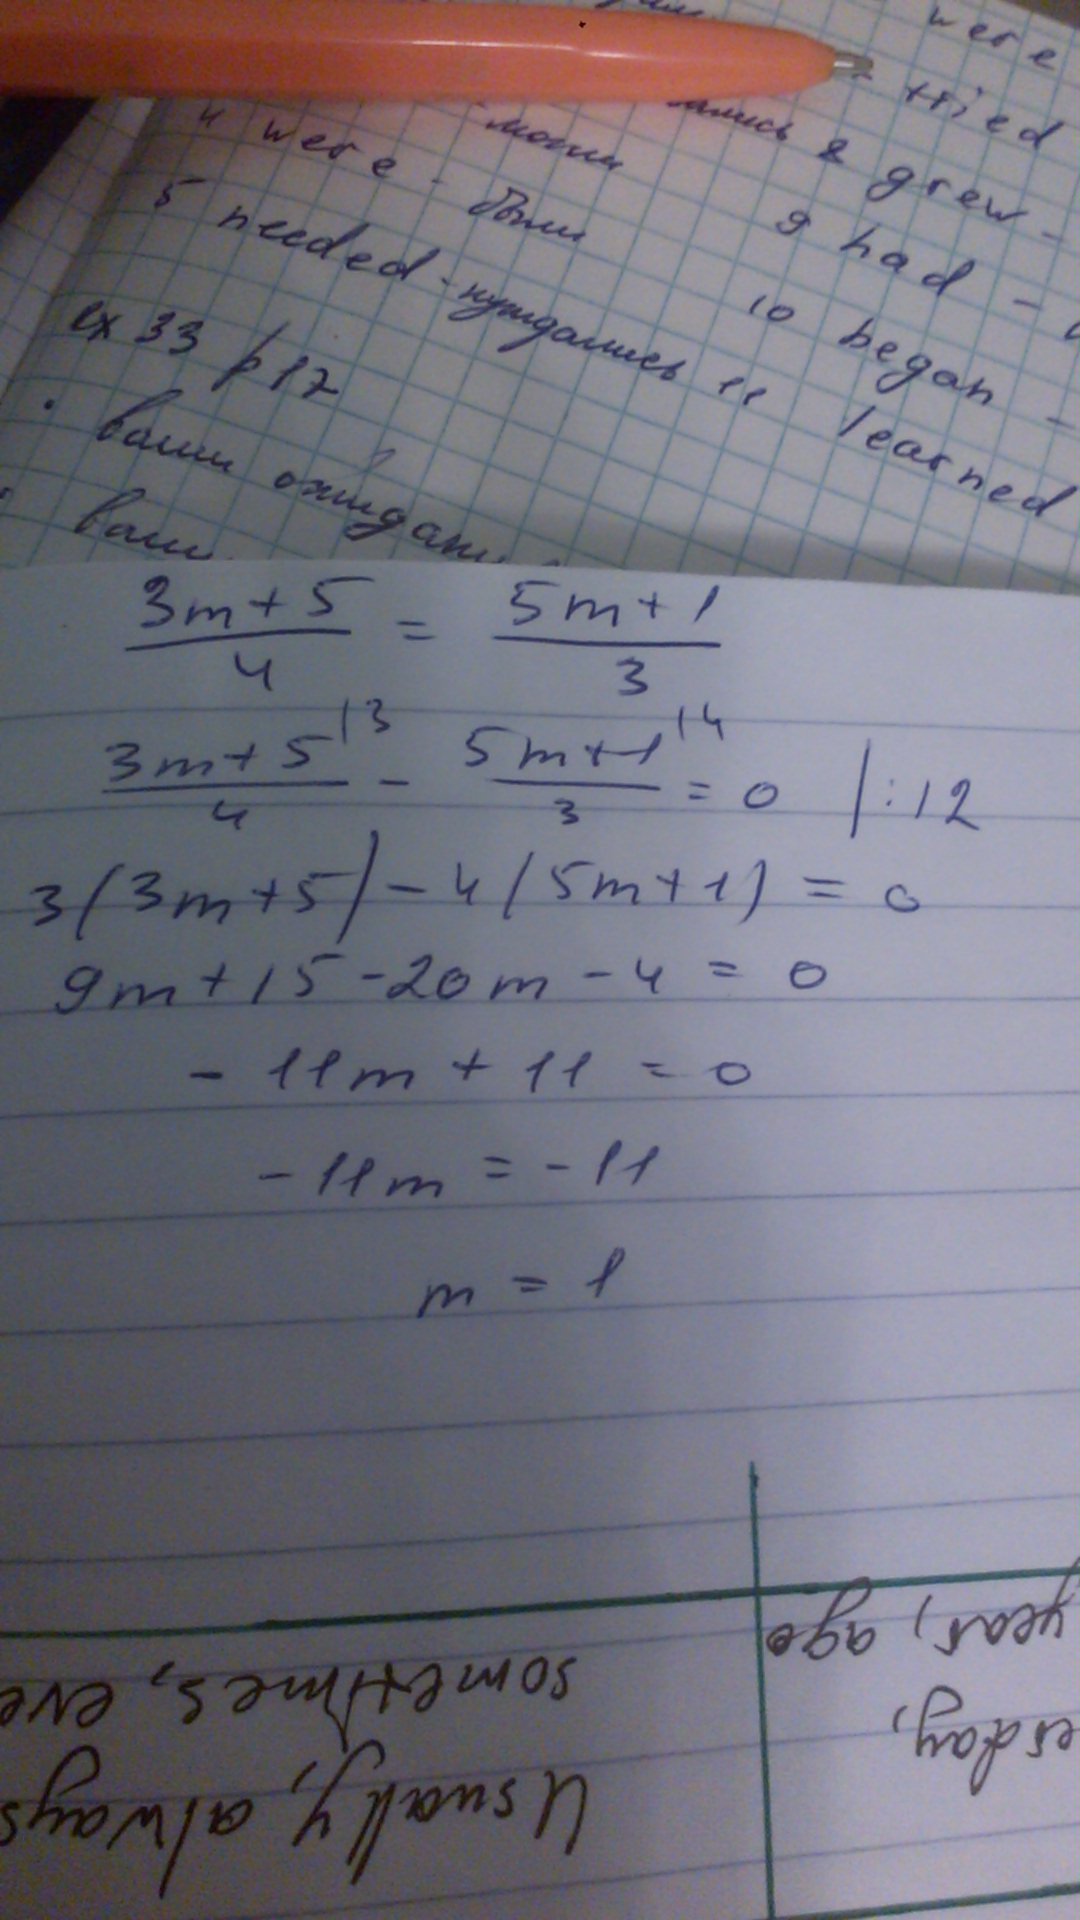 were
tried
8 grew -
могли
4 were - были
9 had -
5 needed - нуждались
10 began -
11 learned
ex 33 p 17
ваши
ваши
3m+5/4 = 5m+1/3
3m+5|3/4 - 5m+1|4/3 = 0 | : 12
3(3m+5) - 4(5m+1) = 0
9m+15-20m-4 = 0
-11m + 11 = 0
-11m = -11
m = 1
Usually, always
sometimes, eve
year, ago